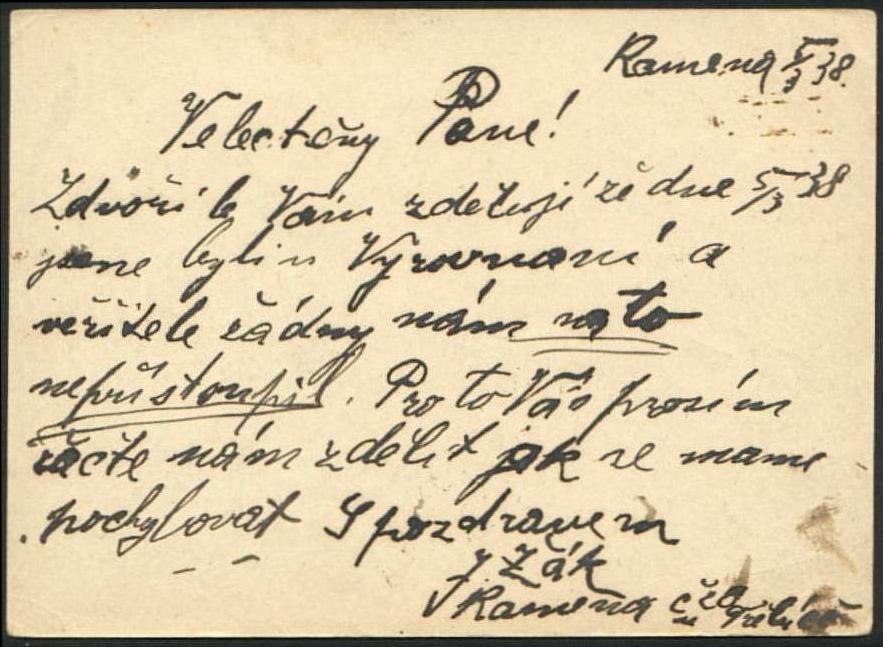 Kamena 5/3 38.
Velectěny Pane!
Zdvoří le Vám zdeluji že dne 5/3 38
jsme byli u Vyrovnaní a
veřitele žádny nám na to
nepřistoupil. Proto Vás prosím
račte nám zdělit jak se mame
pochylovat S pozdravem
Žák
V Kamena